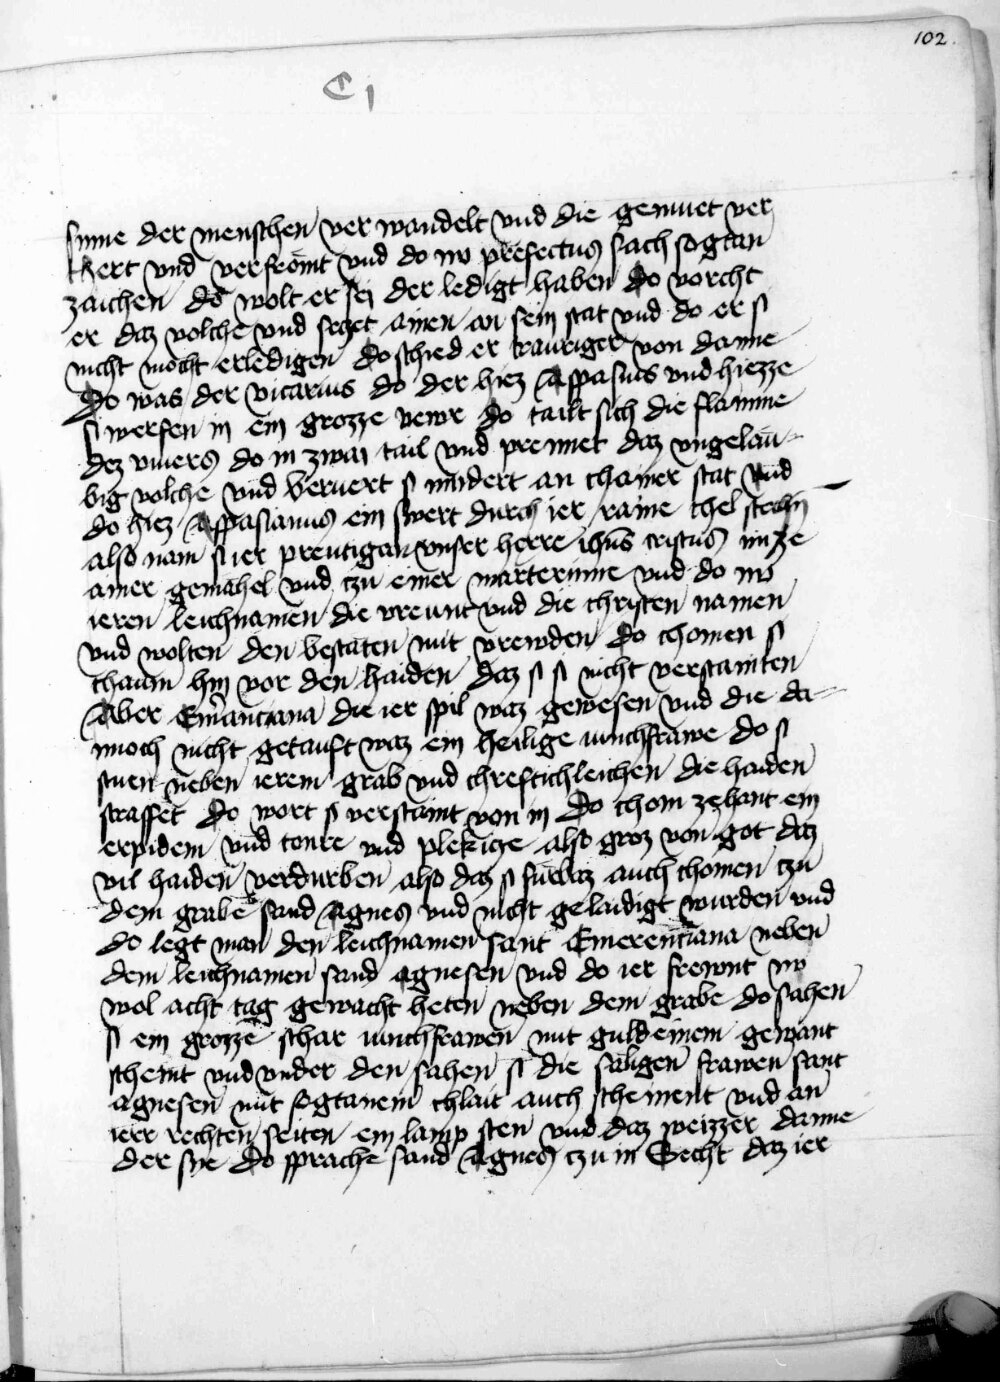 102.
C j
sinne der menschen ver wandelt vnd die gemuet ver
chert vnd verfromt vnd do nv prefectus sach sogtan
zaichen do wolt er sei der ledigt haben Do vorcht
er daz volche vnd seczet ainen an sein stat vnd do er si
nicht mocht erledigen do schied er trauriger von danne
Do was der vicarius do der hiez Aspasius vnd hiezze
si werfen in ein grozze vewr do tailt sich die flamme
dez vivers do in zwai tail vnd prennet daz vngelau-
big volche vnd beruert si nindert an chainer stat Vnd
do hiez Aspasianus ein swert durch ier raine chel stechn
also nam si ier preutigan vnser herre ihus cristus im ze
ainer gemahel vnd czu einer marterinne vnd do nv
ieren leichnamen die vreunt vnd die christen namen
vnd wolten den bestaten mit vrewden Do chomen si
chaum hin vor den haiden daz si si nicht verstainten
Aber Emanciana die ier spil waz gewesen vnd die da-
nnoch nicht getauft waz ein heilige iunchfrawe do si
stuen neben ierem grab vnd chreftichleichen die haiden
straffet Do wort si verstaint von in Do chom zehant ein
erpidem vnd tonre vnd plekcze also groz von got daz
vil haiden verdurben also daz si furbaz auch chomen czu
dem grabe sand Agnes vnd nicht gelaidigt wurden vnd
do legt man den leichnamen sant Emerenciana neben
dem leichnamen sand agnesen vnd do ier frewnt nv
wol acht tag gewacht heten neben dem grabe do sahen
si ein grozze schar iunchfrawen mit guldeinem gewant
scheint vnd vnder den sahen si die saligen frawen sant
agnesen mit sogtanem chlait auch scheinent vnd an
ierr rechten seiten ein lamp sten vnd daz weizzer danne
der sne Do sprache sand Agnes czu in Secht daz ier